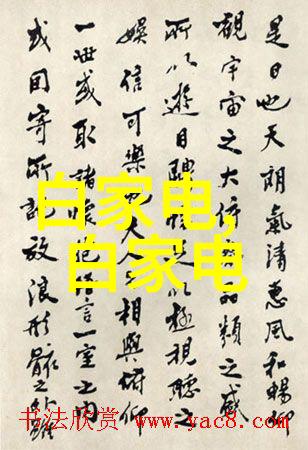 是日也天朗氣清惠風和暢仰
觀宇宙之大俯察品類之盛
所以遊目騁懷足以極視聽之
娛信可樂也夫人之相與俯仰
一世或取諸懷抱悟言一室之內
或因寄所託放浪形骸之外雖
白家电,
白家电
书法欣赏 www.yac8.com